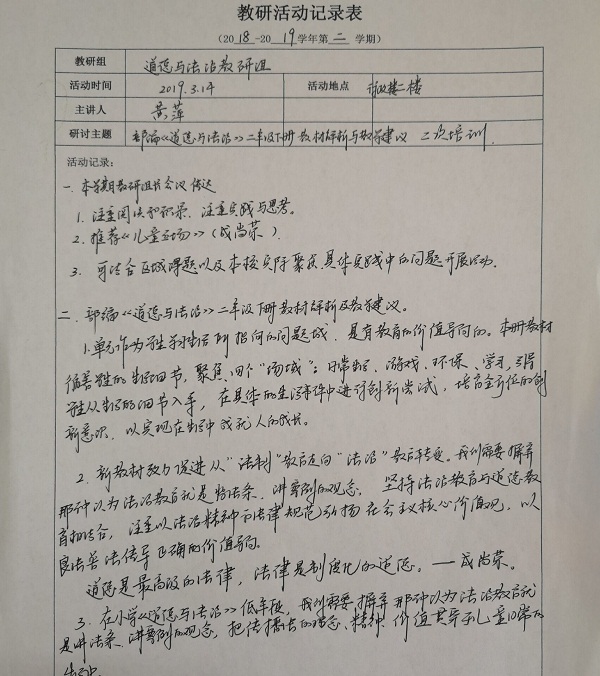 教研活动记录表
（2018-2019学年第二学期）
教研组 道德与法治教研组
活动时间 2019.3.14 活动地点 行政楼二楼
主讲人 黄萍
研讨主题 部编《道德与法治》二年级下册教材解析与教学建议 二次培训
活动记录：
一、本学期教研组长会议传达
1. 注重阅读和积累、注重实践与思考。
2. 推荐《儿童立场》（成尚荣）
3. 可结合区域课题以及本校实际聚焦具体实践中的问题开展活动。
二、部编《道德与法治》二年级下册教材解析及教学建议。
1. 单元作为学生学习生活所指向的问题域，是有教育的价值导向的。本册教材
循着学生的生活细节，聚焦四个“场域”：日常生活、游戏、环保、学习，引导
学生从生活的细节入手，在具体的生活事件中进行创新尝试，培育全方位的创
新意识，以实现在生活中成就人的成长。
2. 新教材致力促进从“法制”教育走向“法治”教育转变。我们需要摒弃
那种以为法治教育就是讲法条、讲案例的观念，坚持法治教育与道德教
育相结合，注重以法治精神和法律规范弘扬社会主义核心价值观，以
良法善法传导正确的价值导向。
道德是最高级的法律，法律是制度化的道德。——成尚荣。
3. 在小学《道德与法治》低年段，我们需要摒弃那种以为法治教育就
是讲法条、讲案例的观念，把传播法的理念、精神、价值贯穿于儿童日常的
生活中